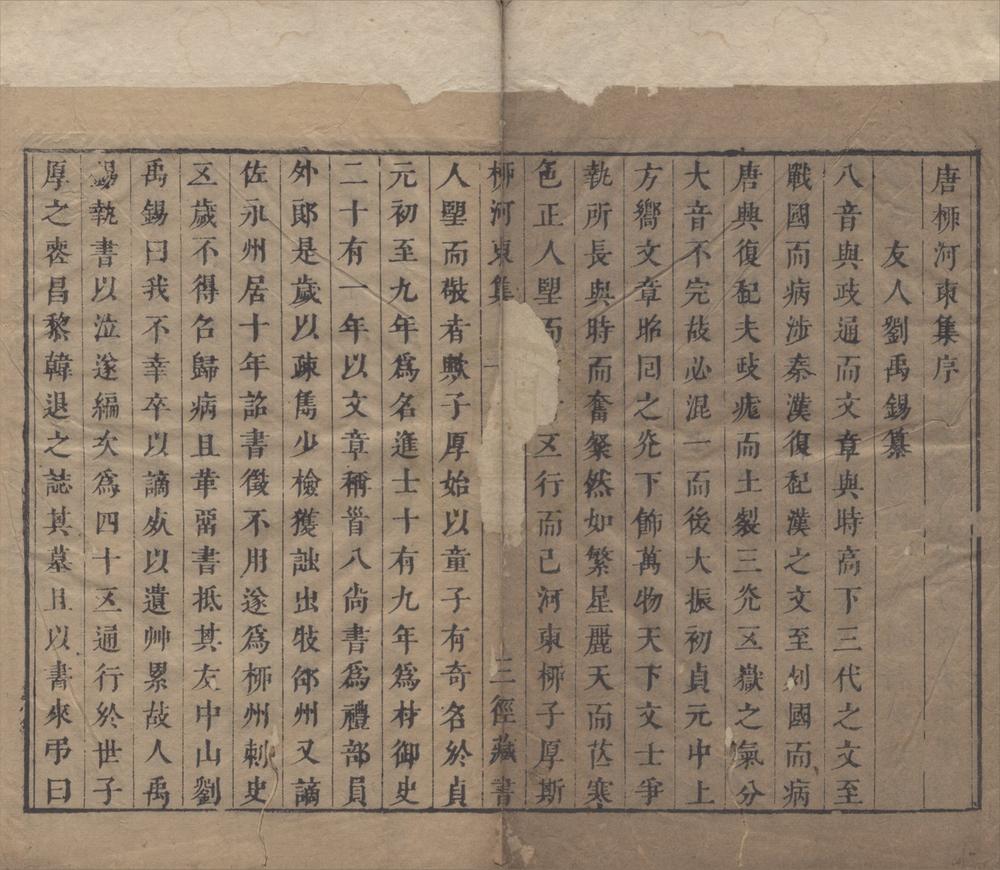 唐柳河東集序
友人劉禹錫纂
八音與政通而文章與時高下三代之文至
戰國而病涉秦漢復起漢之文至列國而病
唐興復起夫政龐而土裂三光五嶽之氣分
大音不完故必混一而後大振初貞元中上
方嚮文章昭回之光下飾萬物天下文士爭
執所長與時而奮粲然如繁星麗天而芒寒
色正人望而五行而已河東柳子厚斯
柳河東集 三徑藏書
人望而敬者歟子厚始以童子有奇名於貞
元初至九年為名進士十有九年為材御史
二十有一年以文章稱首入尚書為禮部員
外郎是歲以疎雋少檢獲訕出牧邵州又謫
佐永州居十年詔書徵不用遂為柳州刺史
五歲不得召歸病且革留書抵其友中山劉
禹錫曰我不幸卒以謫死以遺艸累故人禹
錫執書以泣遂編次為四十五通行於世子
厚之喪昌黎韓退之誌其墓且以書來弔曰